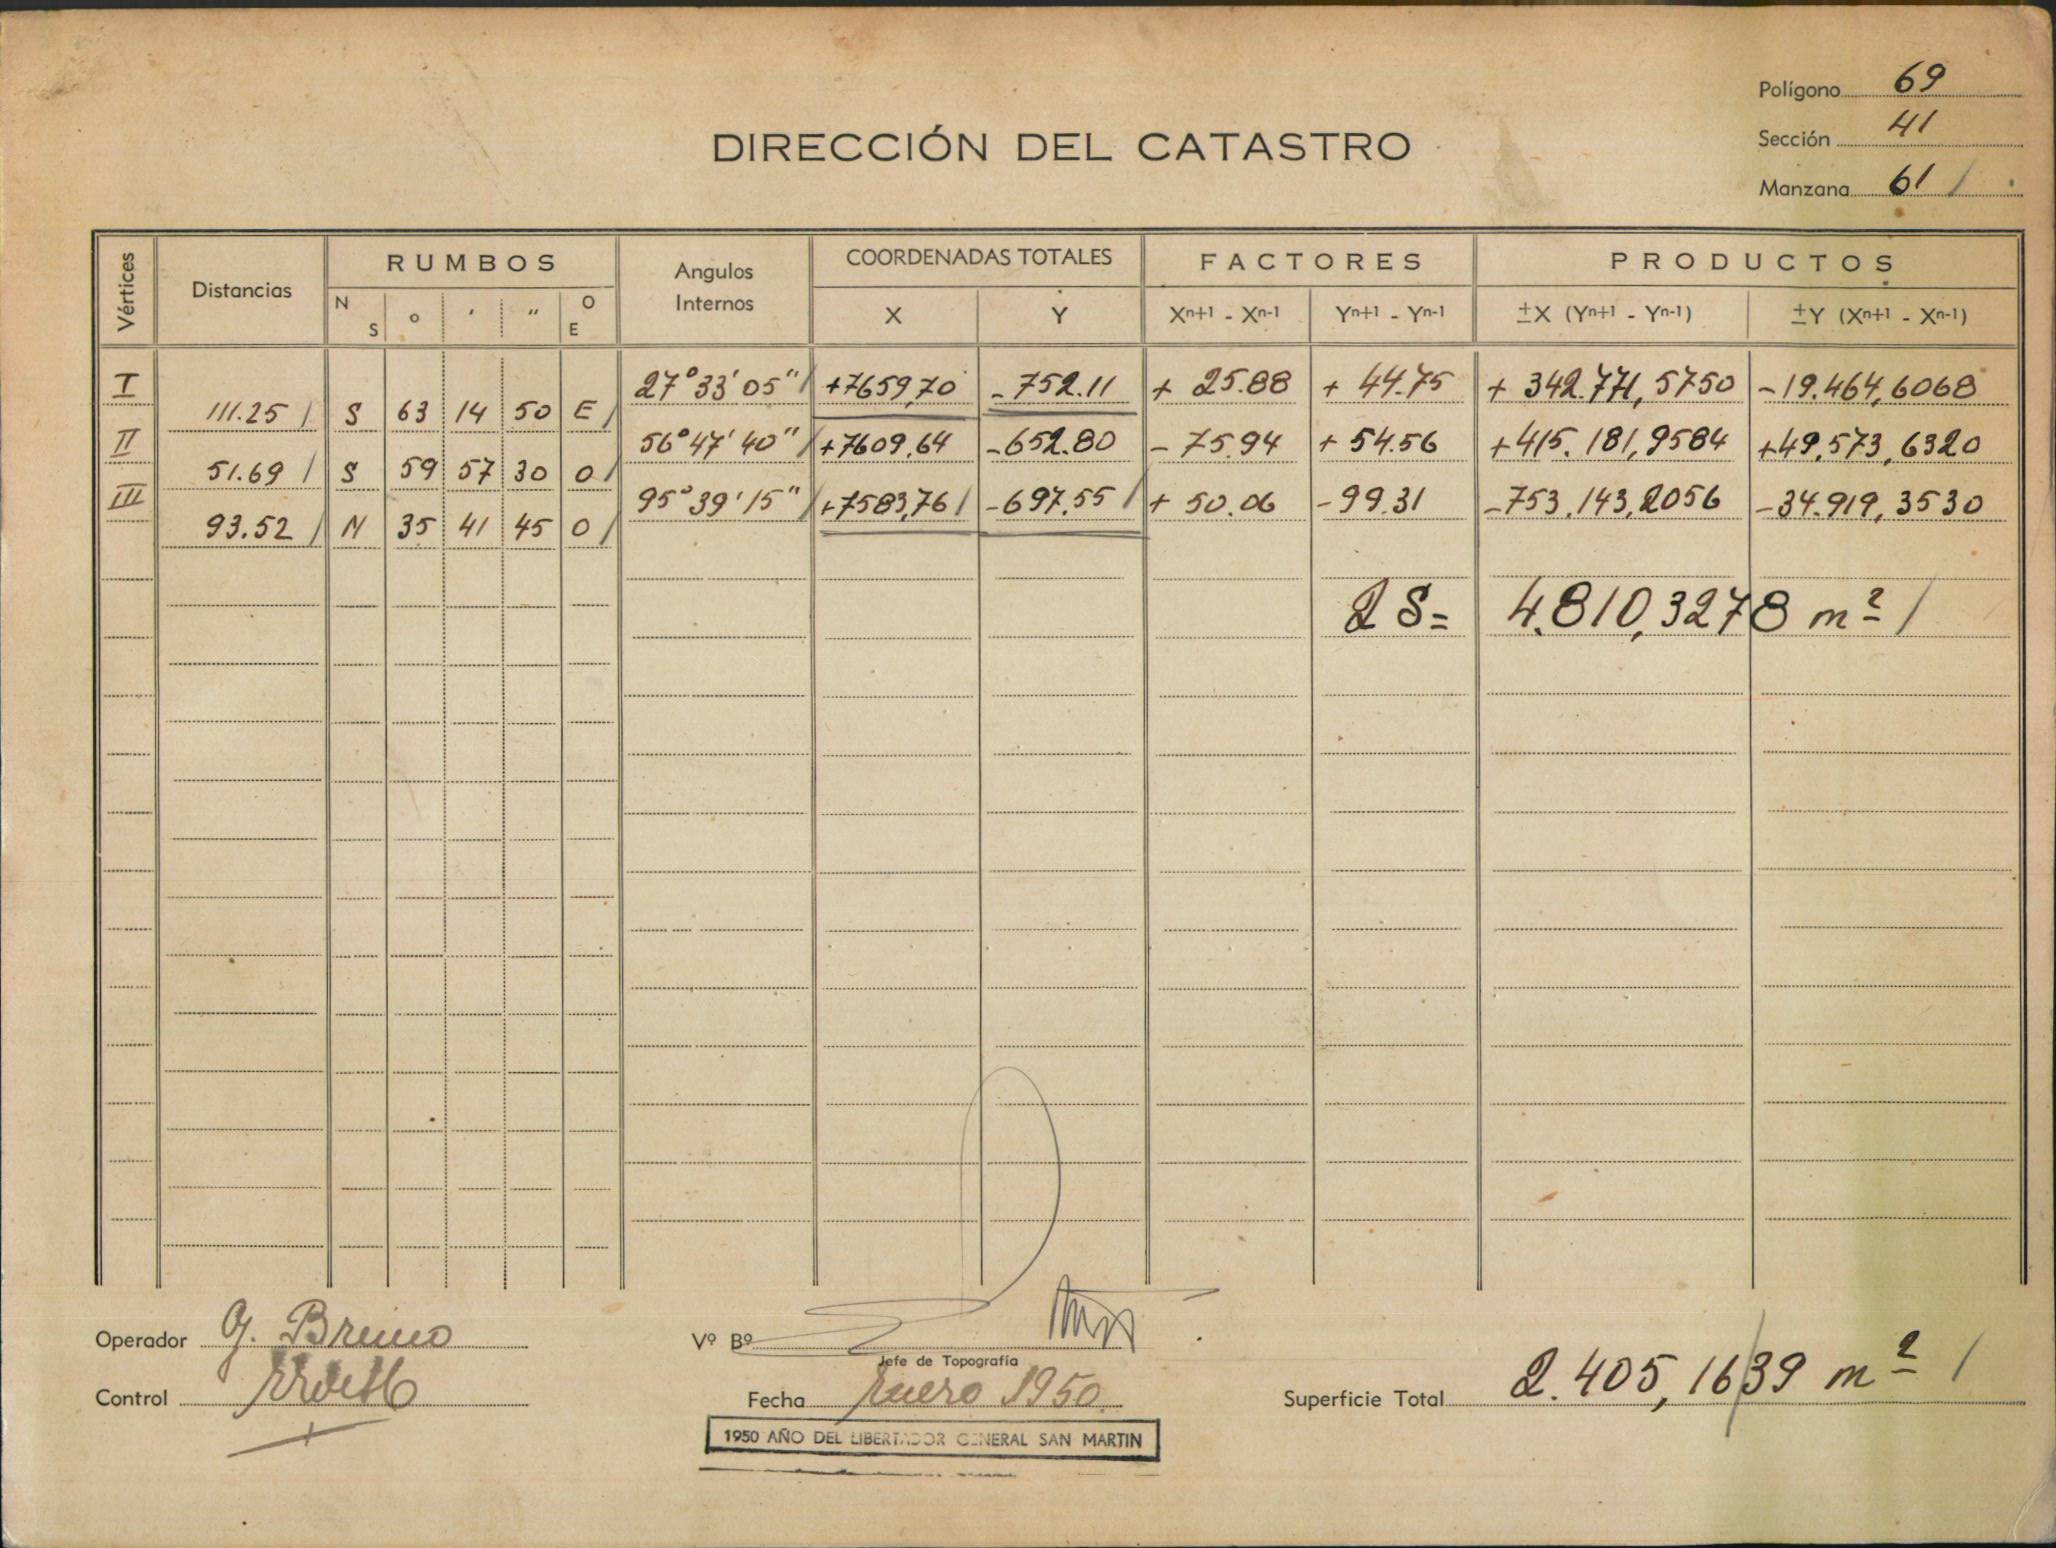 Polígono 69
Sección 41
Manzana 61 /
DIRECCIÓN DEL CATASTRO
Vértices Distancias RUMBOS Angulos Internos COORDENADAS TOTALES FACTORES PRODUCTOS
N S ° ' " O E X Y Xn+1 - Xn-1 Yn+1 - Yn-1 ±X (Yn+1 - Yn-1) ±Y (Xn+1 - Xn-1)
I 27° 33' 05" / +7659,70 -752.11 + 25.88 + 44.75 + 342.771,5750 -19.464,6068
111.25 / S 63 14 50 E /
II 56° 47' 40" / +7609,64 -652.80 - 75.94 + 54.56 +415.181,9584 +49.573,6320
51.69 / S 59 57 30 O /
III 95° 39' 15" / +7583,76 / -697.55 / + 50.06 -99.31 -753.143,2056 -34.919,3530
93.52 / N 35 41 45 O /
2 S= 4.810,3278 m² /
Operador G. Bruno
Vº Bº
Jefe de Topografía
Control
Fecha Enero 1950
Superficie Total 2.405,1639 m² /
1950 AÑO DEL LIBERTADOR GENERAL SAN MARTIN